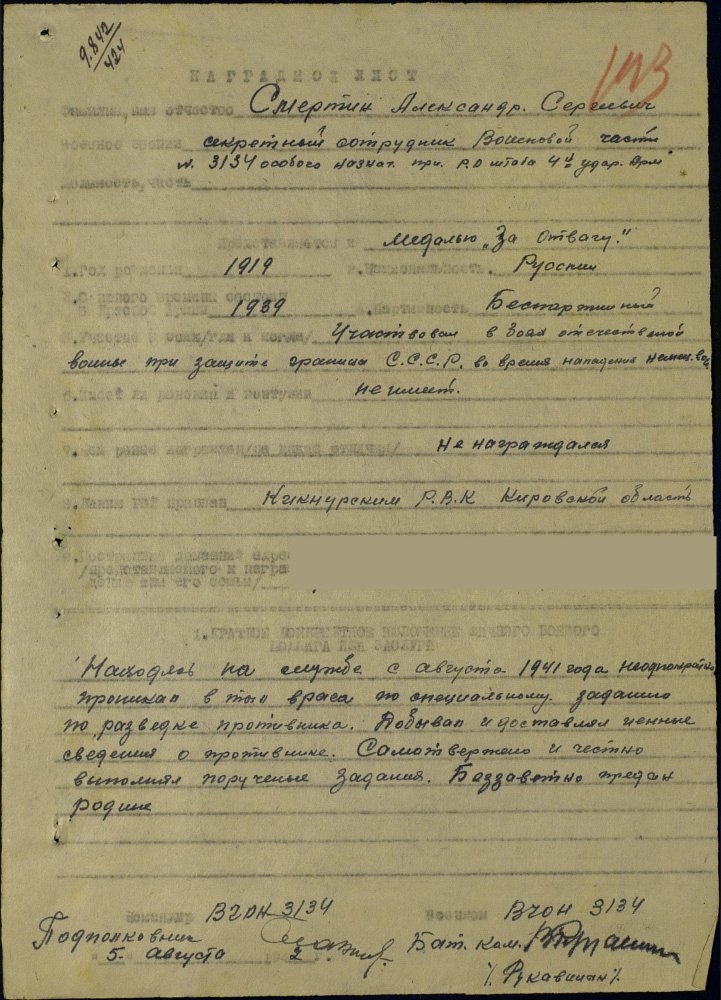 9.842
424
НАГРАДНОЙ ЛИСТ
Фамилия, имя отчество Смертин Александр. Сергеевич
Военное звание секретный сотрудник Воисковой части
N. 3134 особого назнат. при. Р.О штаба 4й удар. Арм
Должность, часть
Представляется к медалью „За Отвагу."
1. Год рождения 1919 2. Национальность. Русский
3. С какого времени состоит
в Красной Армии 1939 4. Партийность Беспартийный
Участвовал в боях отечественой
войне при защите граница С.С.С.Р. во время нападения немец.
6. Имеет ли ранения и контузии не имеет.
7. Чем ранее награжден /за какие отличия/ не награждался
8. Каким РВК призван Кикнурским Р.В.К Кировской область
9. Постоянный домашний адрес
/представляемого к награ
дению или его семьи/
1. КРАТКОЕ КОНКРЕТНОЕ ИЗЛОЖЕНИЕ ЛИЧНОГО БОЕВОГО
ПОДВИГА ИЛИ ЗАСЛУГИ
Находясь на службе с августа 1941 года неоднократно
проникал в тыл врага по специальному заданию
по разведке противника. Добывал и доставлял ценные
сведения о противнике. Самотвержено и честно
выполнял поручение задания. Беззаветно предан
родине
Командир ВЧОН 3134 Военком ВЧОН 3134
Подполковник Бат. ком.
5. августа 2
/. Рукавицын /.